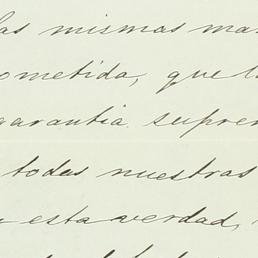 las mismas ma
ometida, que l
garantia supre
todas nuestras
esta verdad,